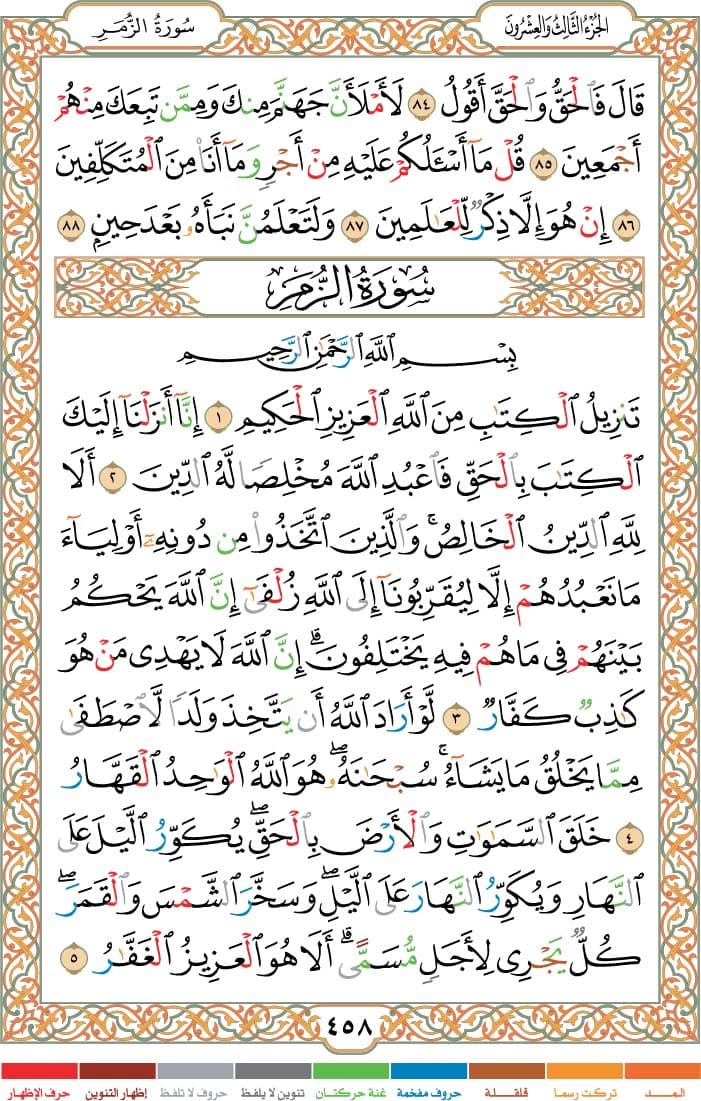 الجزء الثالث والعشرون
سورة الزمر
قَالَ فَٱلْحَقُّ وَٱلْحَقَّ أَقُولُ ٨٤ لَأَمْلَأَنَّ جَهَنَّمَ مِنكَ وَمِمَّن تَبِعَكَ مِنْهُمْ
أَجْمَعِينَ ٨٥ قُلْ مَآ أَسْـَٔلُكُمْ عَلَيْهِ مِنْ أَجْرٍ وَمَآ أَنَا۠ مِنَ ٱلْمُتَكَلِّفِينَ
٨٦ إِنْ هُوَ إِلَّا ذِكْرٌ لِّلْعَـٰلَمِينَ ٨٧ وَلَتَعْلَمُنَّ نَبَأَهُۥ بَعْدَ حِينٍۭ ٨٨
سُورَةُ الزُّمَرِ
بِسْمِ ٱللَّهِ ٱلرَّحْمَـٰنِ ٱلرَّحِيمِ
تَنزِيلُ ٱلْكِتَـٰبِ مِنَ ٱللَّهِ ٱلْعَزِيزِ ٱلْحَكِيمِ ١ إِنَّآ أَنزَلْنَآ إِلَيْكَ
ٱلْكِتَـٰبَ بِٱلْحَقِّ فَٱعْبُدِ ٱللَّهَ مُخْلِصًا لَّهُ ٱلدِّينَ ٢ أَلَا
لِلَّهِ ٱلدِّينُ ٱلْخَالِصُ ۚ وَٱلَّذِينَ ٱتَّخَذُوا۟ مِن دُونِهِۦٓ أَوْلِيَآءَ
مَا نَعْبُدُهُمْ إِلَّا لِيُقَرِّبُونَآ إِلَى ٱللَّهِ زُلْفَىٰٓ إِنَّ ٱللَّهَ يَحْكُمُ
بَيْنَهُمْ فِى مَا هُمْ فِيهِ يَخْتَلِفُونَ ۗ إِنَّ ٱللَّهَ لَا يَهْدِى مَنْ هُوَ
كَـٰذِبٌ كَفَّارٌ ٣ لَّوْ أَرَادَ ٱللَّهُ أَن يَتَّخِذَ وَلَدًا لَّٱصْطَفَىٰ
مِمَّا يَخْلُقُ مَا يَشَآءُ ۚ سُبْحَـٰنَهُۥ ۖ هُوَ ٱللَّهُ ٱلْوَٰحِدُ ٱلْقَهَّارُ
٤ خَلَقَ ٱلسَّمَـٰوَٰتِ وَٱلْأَرْضَ بِٱلْحَقِّ ۖ يُكَوِّرُ ٱلَّيْلَ عَلَى
ٱلنَّهَارِ وَيُكَوِّرُ ٱلنَّهَارَ عَلَى ٱلَّيْلِ ۖ وَسَخَّرَ ٱلشَّمْسَ وَٱلْقَمَرَ ۖ
كُلٌّ يَجْرِى لِأَجَلٍ مُّسَمًّى ۗ أَلَا هُوَ ٱلْعَزِيزُ ٱلْغَفَّـٰرُ ٥
٤٥٨
المـــد تركت رسما قلقلة حروف مفخمة غنة حركتان تنوين لا يلفظ حروف لا تلفظ إظهار التنوين حرف الإظهار